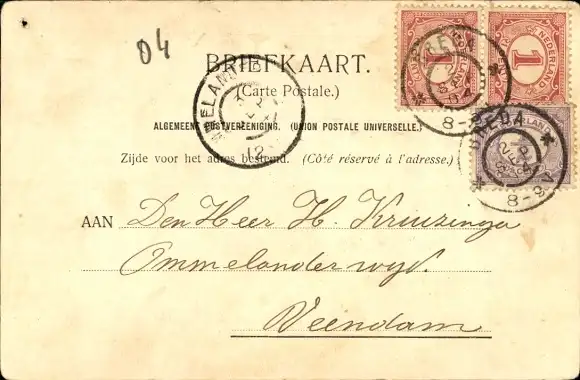 04
BRIEFKAART.
(Carte Postale.)
ALGEMEENE POSTVEREENIGING. (UNION POSTALE UNIVERSELLE.)
Zijde voor het adres bestemd. (Côté réservé à l'adresse.)
AAN Den Heer H. Kruizinga
Ommelanderwijk
Veendam
1
1
NEDERLAND
BREDA
8-9
BREDA
8-9 V
12